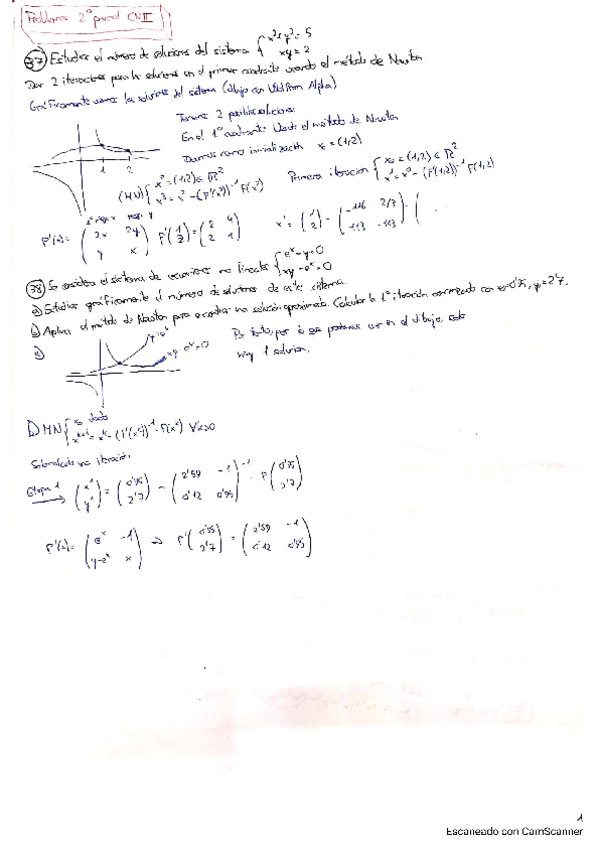 Problemas 2º parcial CNII
37) Estudiar el número de soluciones del sistema { x²+y²=5
xy=2
Dar 2 iteraciones para la solución en el primer cuadrante usando el método de Newton
Gráficamente vemos las soluciones del sistema (dibujo con Wolfram Alpha)
Tenemos 2 posibles soluciones
En el 1º cuadrante. Usando el método de Newton
Daremos como inicialización x₀=(1,2)
1 2
(MN) { x⁰=(1,2)∈ℝ²
Primera iteración { x₀=(1,2)∈ℝ²
x¹=x⁰-(F'(1,2))⁻¹ F(1,2)
F'(x)= ( 2x 2y
y x )
F'(1 2)= ( 2 4
2 1 )
x¹= (1 2) - ( -1/6 2/3
1/3 -1/3 ) · (
38) Se considera el sistema de ecuaciones no lineales { eˣ-y=0
xy-eˣ=0
a) Estudiar gráficamente el número de soluciones de este sistema.
b) Aplicar el método de Newton para encontrar una solución aproximada. Calcular la 1ª iteración comenzando con x=0'95, y=2'7.
a)
xy-eˣ=0
Por tanto, por lo que podemos ver en el dibujo, solo
hay 1 solución.
b) MN { x₀ dado
xᵏ⁺¹=xᵏ-(F'(xᵏ))⁻¹·F(xᵏ) ∀k≥0
Solo nos piden una iteración
Etapa 1 → (x¹ y¹) = (0'95 2'7) - ( 2'59 -1
0'12 0'95 )⁻¹ · F (0'95 2'7)
F'(x)= ( eˣ -1
y-eˣ x ) ⇒ F'(0'95 2'7) = ( 2'59 -1
0'12 0'95 )
1
Escaneado con CamScanner